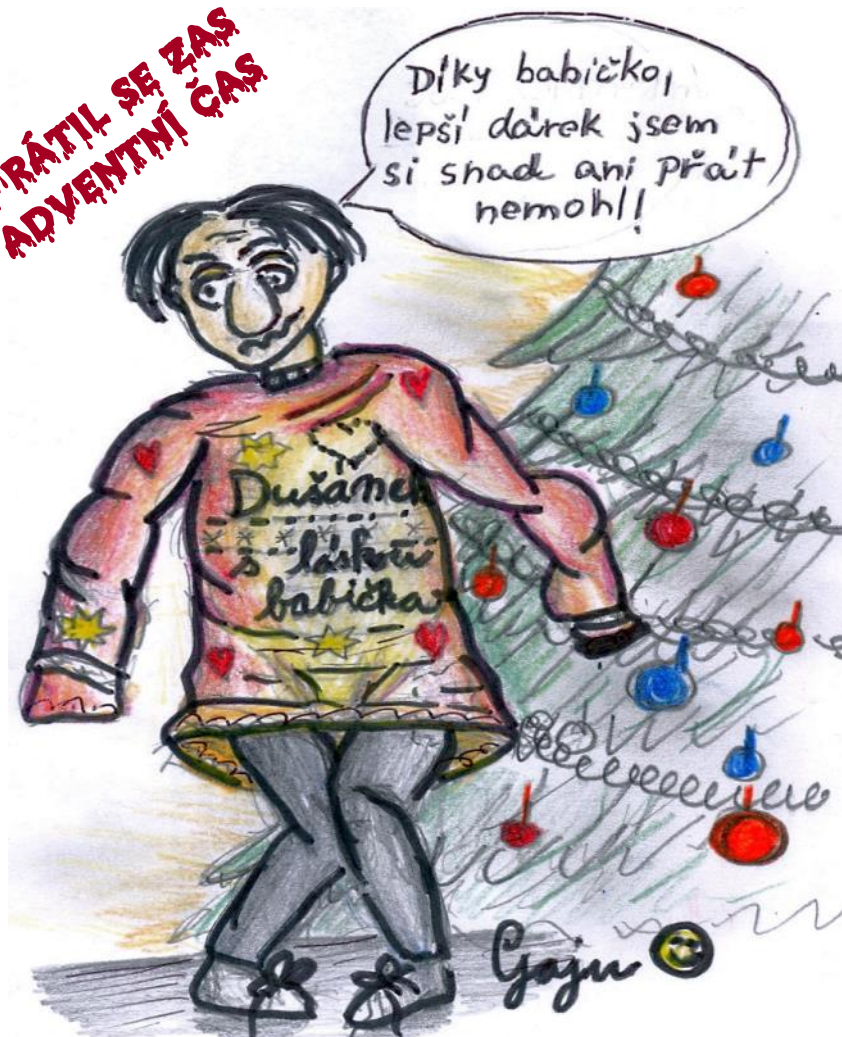 RÁTIL SE ZAS
ADVENTNÍ ČAS
Díky babičko,
lepší dárek jsem
si snad ani přát
nemohl!
Dušánek
s láskou
babička
Gaju